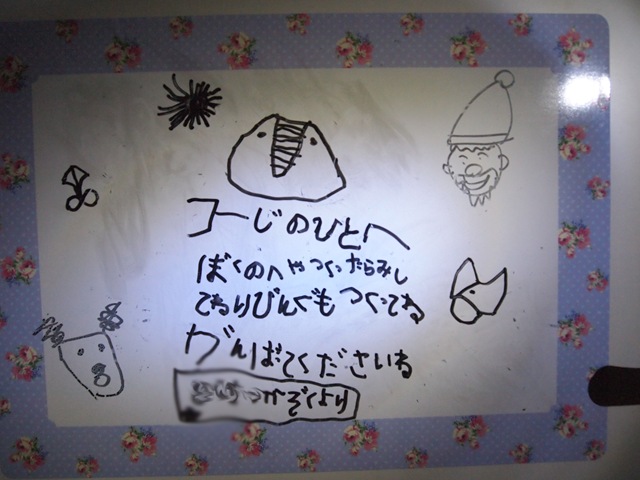 コーじのひとへ
ぼくのへやつくったらみし
てねりびんぐもつくってね
がんばてくださいね
かぞくより